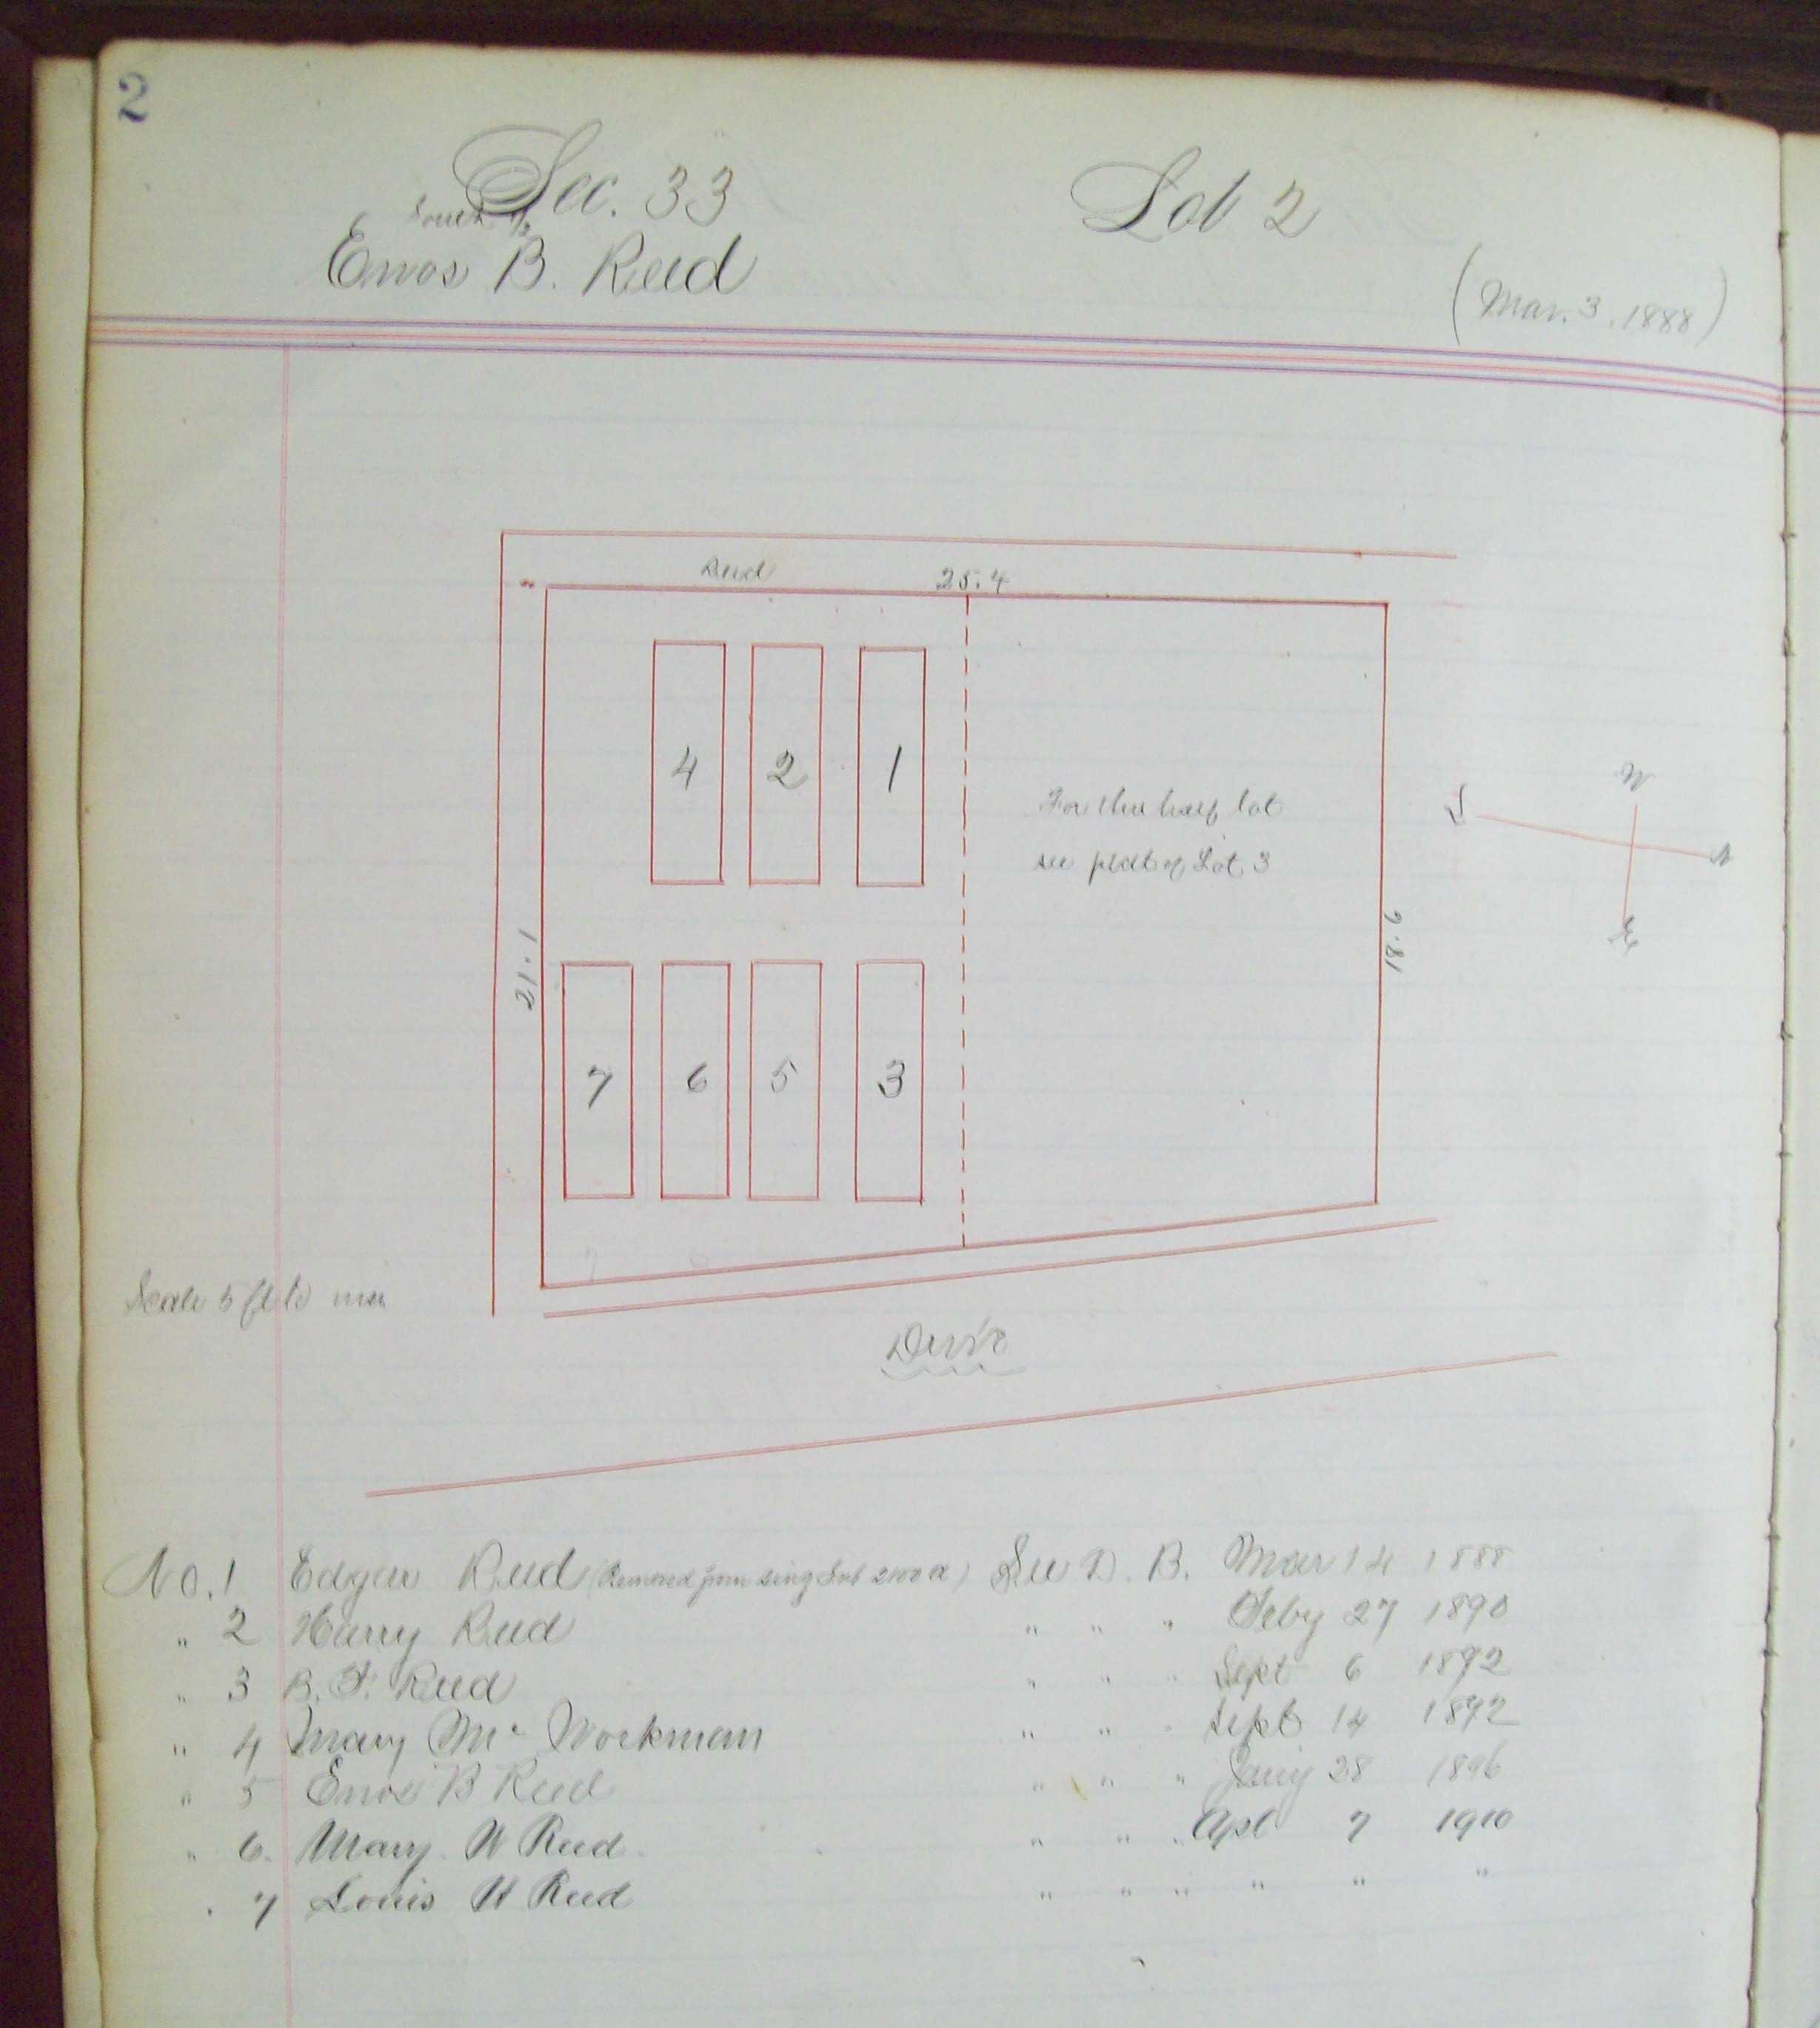 2
Sec. 33 Lot 2
South 1/2
Enos B. Reed
(Mar. 3. 1888)
Reed 25.4
4 2 1
W
For this half lot
S
see plat of Lot 3
N
E
21.1
18.9
7 6 5 3
7 6
Scale 5 ft to inch
Drive
No. 1 Edgar Reed (Removed from Sing Int 2100 a) See D. B. Mar 14 1888
" 2 Harry Reed " " " Feby 27 1890
" 3 B. F. Reed " " " Sept 6 1892
" 4 Mary Mc Workman " " " Sept 14 1892
" 5 Enos B Reed " " " Jany 28 1896
" 6. Mary W Reed " " " Apl 7 1910
" 7 Louis H Reed " " " " " "